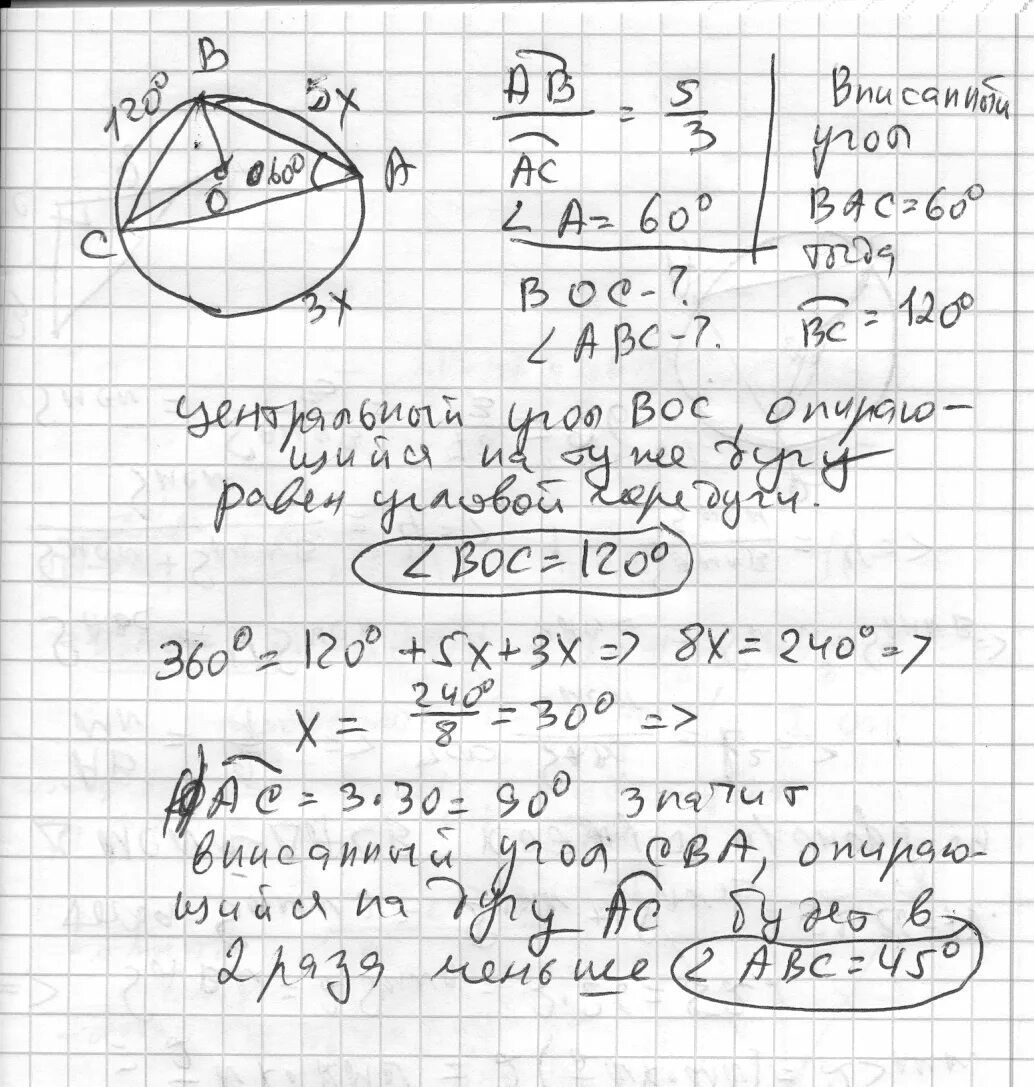 B
120°
5x
A
O
60°
C
3x
AB/AC = 5/3
∠ A = 60°
BOC - ?
∠ ABC - ?
Вписанный
угол
BAC = 60°
тогда
BC = 120°
центральный угол BOC, опираю-
щийся на ту же дугу
равен угловой мере дуги.
∠ BOC = 120°
360° = 120° + 5x + 3x => 8x = 240° =>
x = 240°/8 = 30° =>
AC = 3·30 = 90° значит
вписанный угол CBA, опираю-
щийся на дугу AC будет в
2 раза меньше ∠ ABC = 45°